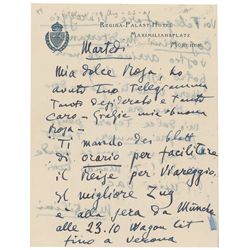 REGINA-PALAST-HOTEL
MAXIMILIANSPLATZ
MÜNCHEN
Martedì
Mia dolce Rosa, ho
avuto tuo Telegramma
Tanto desiderato e tanto
caro - Grazie mia buona
Rosa -
Ti mando dei
di orario per facilitare
il Reise per Viareggio.
Il migliore Zug
e alla sera da München
alle 23.10 Wagon Lit
fino a Verona